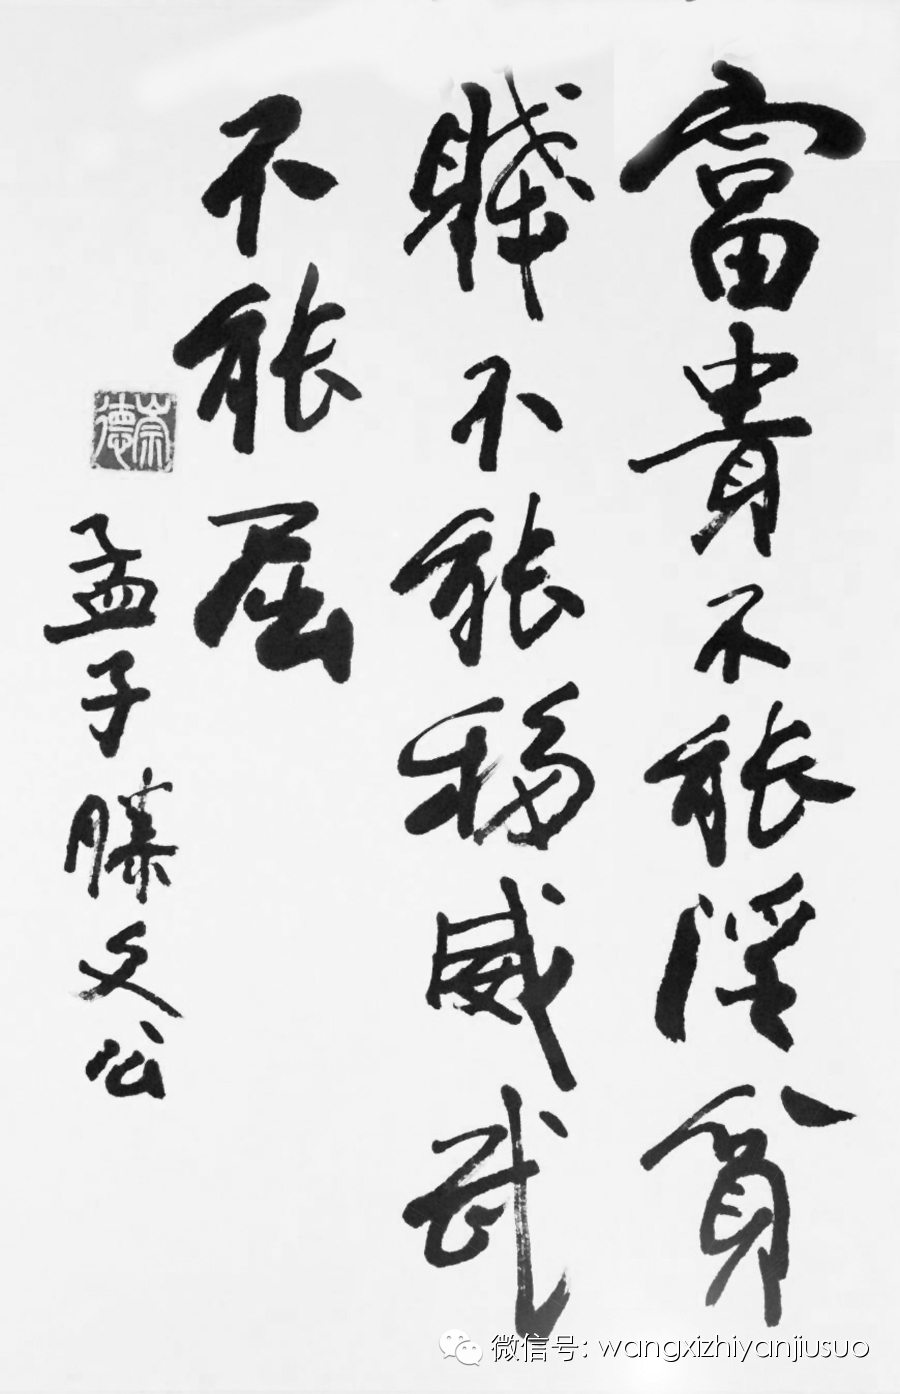 富貴不能淫貧
賤不能移威武
不能屈
孟子滕文公
崇德
微信号: wangxizhiyanjiusuo